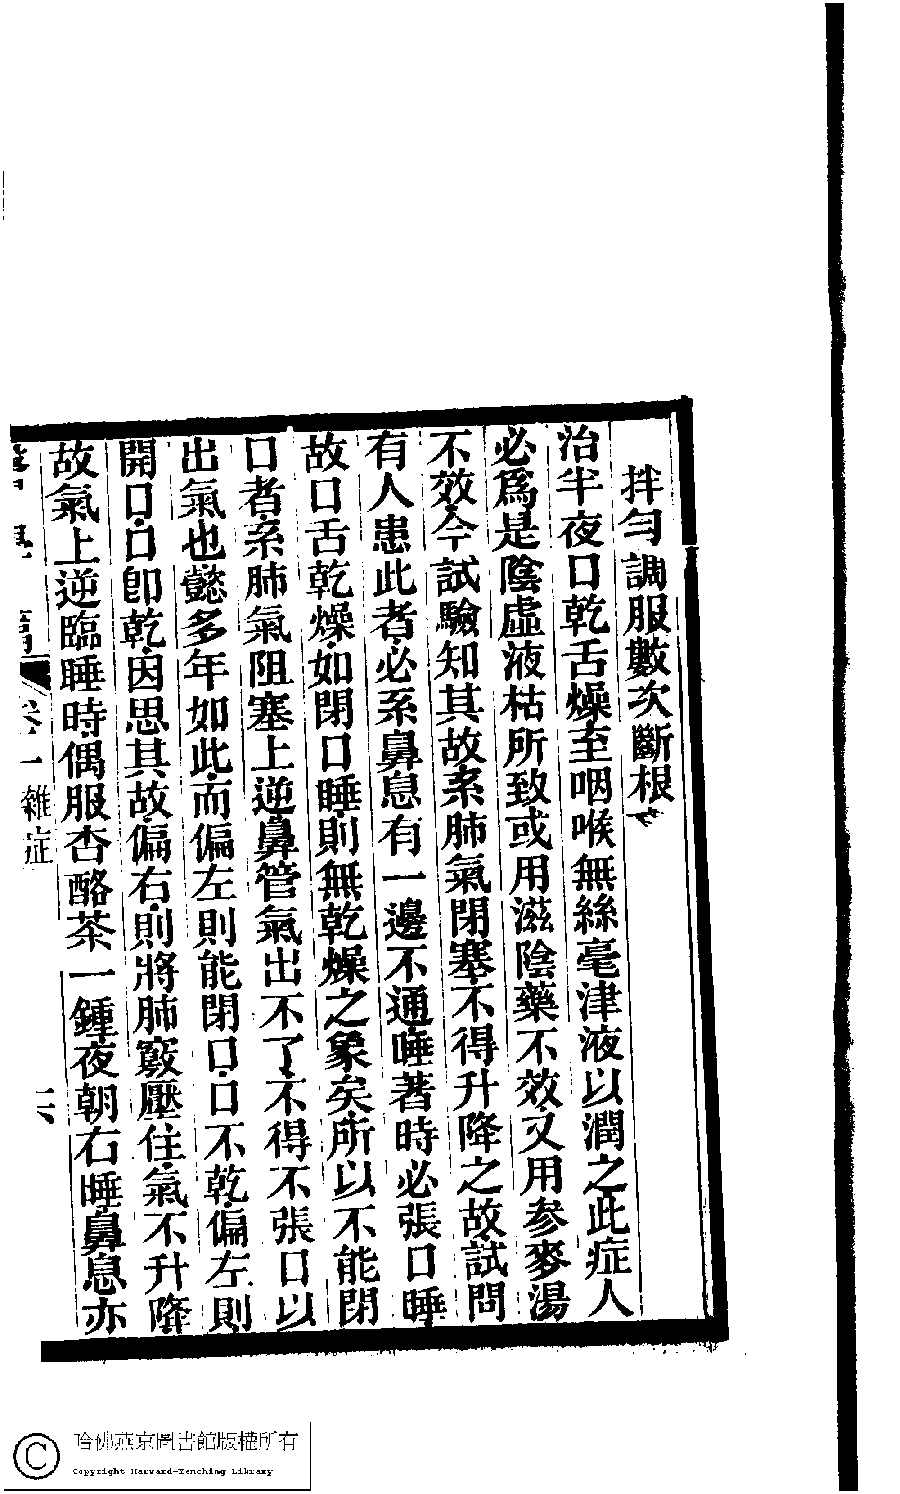 拌勻調服數次斷根
治半夜口乾舌燥至咽喉無絲毫津液以潤之此症人
必爲是陰虛液枯所致或用滋陰藥不效又用參麥湯
不效今試驗知其故系肺氣閉塞不得升降之故試問
有人患此者必系鼻息有一邊不通睡著時必張口睡
故口舌乾燥如閉口睡則無乾燥之象矣所以不能閉
口者系肺氣阻塞上逆鼻管氣出不了不得不張口以
出氣也懿多年如此而偏左則能閉口口不乾偏左則
開口口卽乾因思其故偏右則將肺竅壓住氣不升降
故氣上逆臨睡時偶服杏酪茶一鍾夜朝右睡鼻息亦
卷一 雜症 六
哈佛燕京圖書館版權所有
Copyright Harvard-Yenching Library